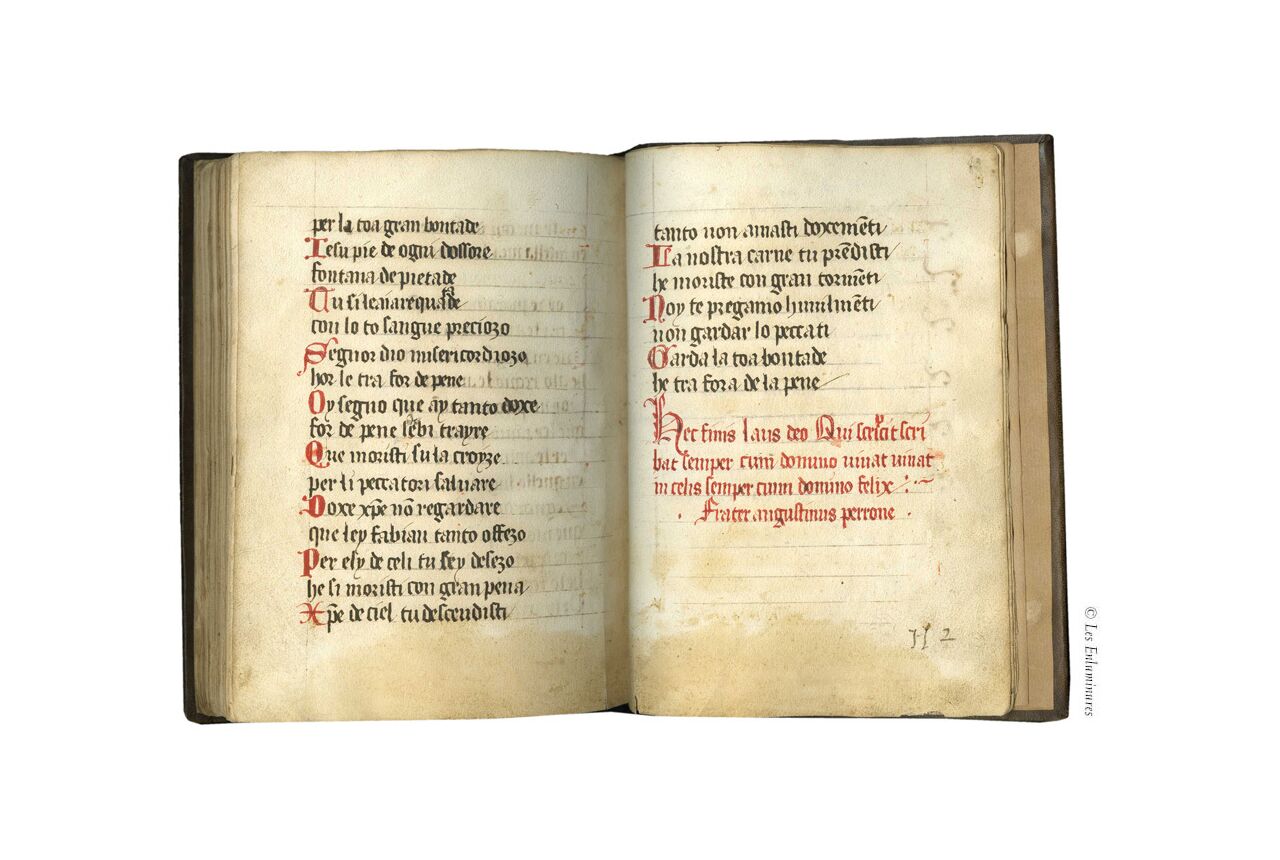 per la toa gran bontade
Iesu pie de ogni dossore
fontana de pietade
Tu si le nare quaste
con lo to sangue preciozo
Segnor dio misericordiozo
hor le tra for de pene
Oy segno que ay tanto doxe
for de pene sebi trayre
Que moristi su la croyze
per li peccatori saluare
Doxe xp̄e nō regardare
que ley fabian tanto offezo
Per esy de celi tu sey desezo
he si moristi con gran pena
Xp̄e de ciel tu descendisti
tanto non amasti doxemēti
La nostra carne tu prēdisti
he moriste con gran tormēti
Noy te pregamo humilmēti
non gardar lo peccati
Garda la toa bontade
he tra fora de la pene
Hec finis laus deo Qui scripcit scri
bat semper cum domino uiuat uiuat
in celis semper cum domino felix
Frater augustinus perrone
H 2
© Les Enluminures